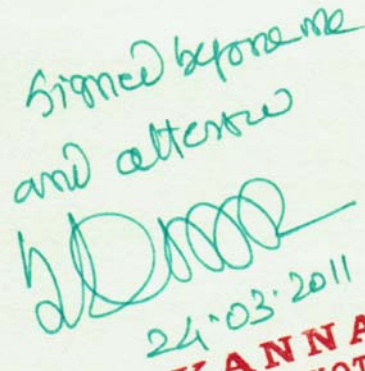 Signed before me
and attested
24.03.2011
KANNA
NOT